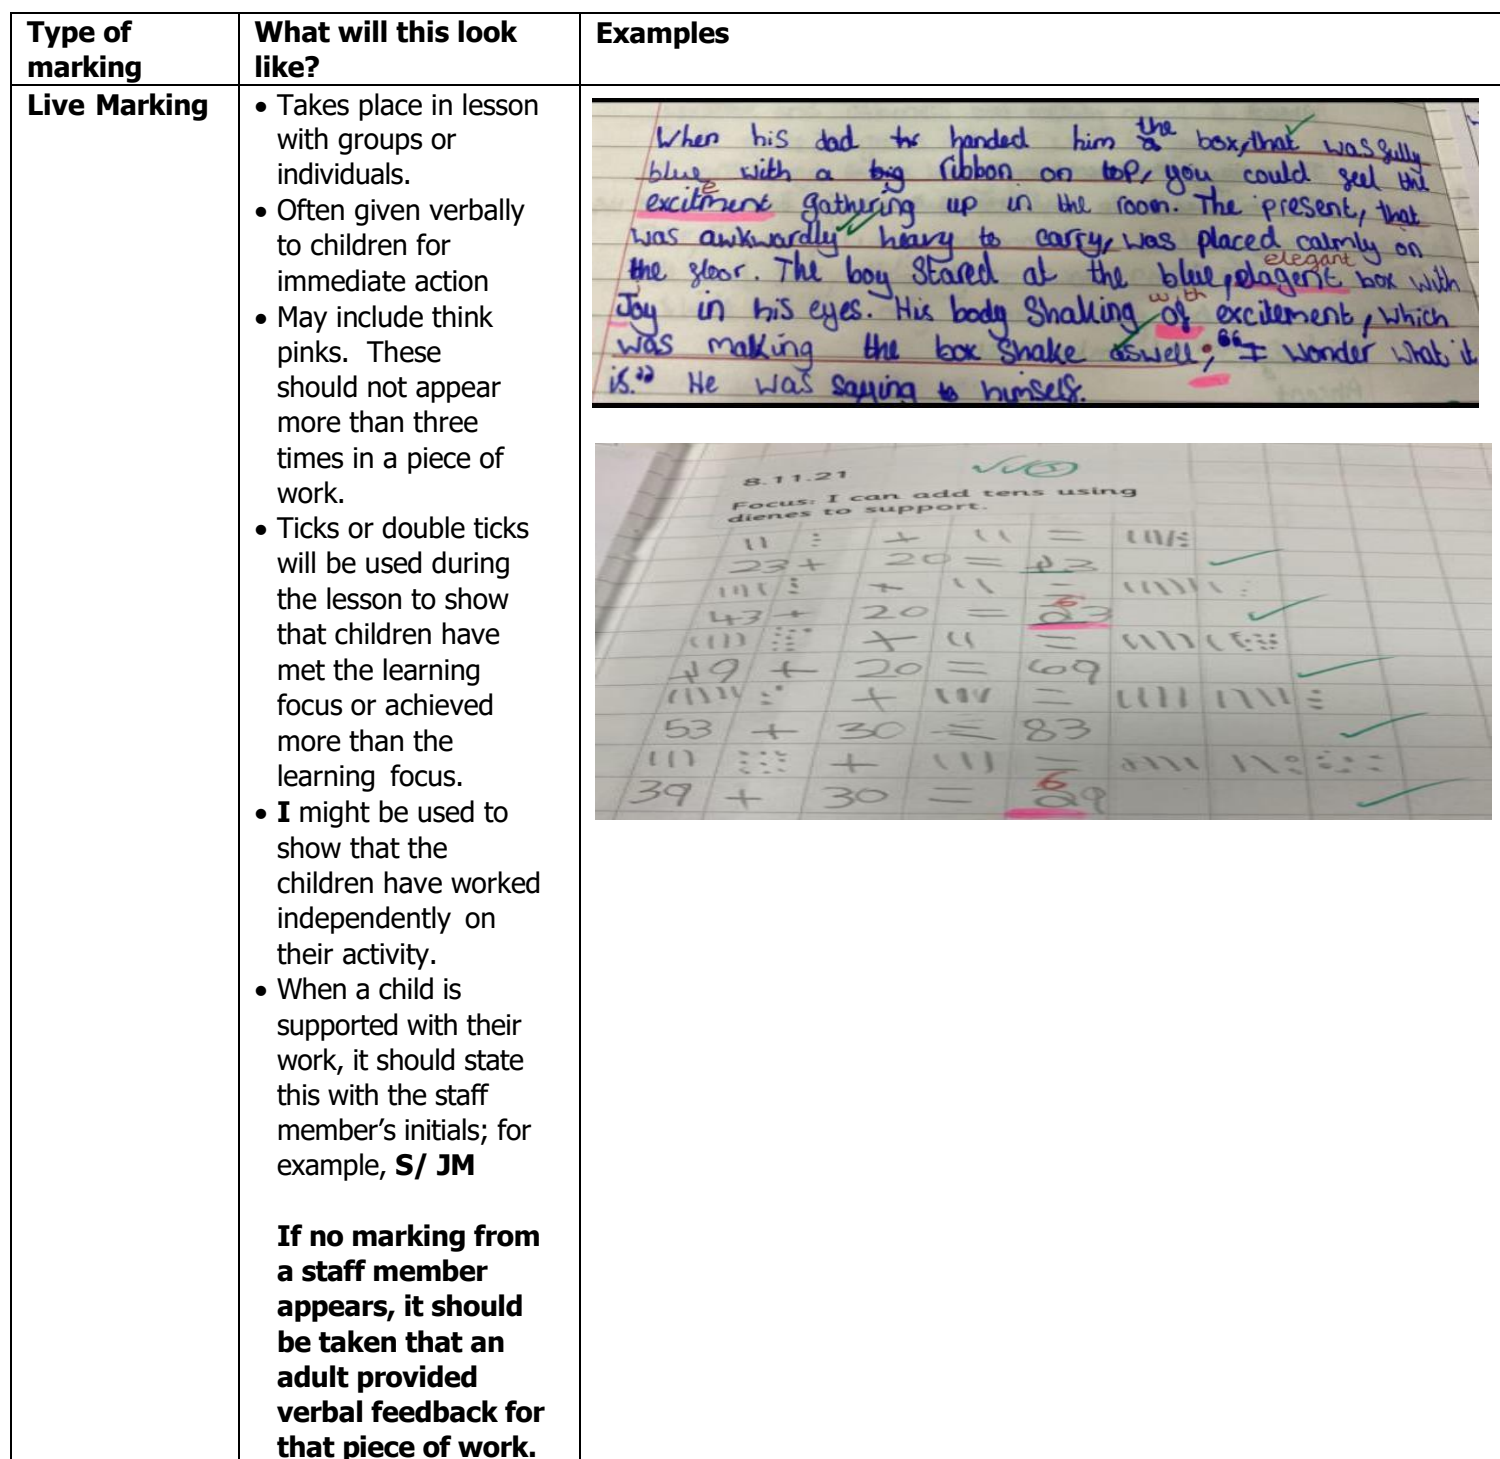 Type of marking
What will this look like?
Examples
Live Marking
• Takes place in lesson
with groups or
individuals.
• Often given verbally
to children for
immediate action
• May include think
pinks. These
should not appear
more than three
times in a piece of
work.
• Ticks or double ticks
will be used during
the lesson to show
that children have
met the learning
focus or achieved
more than the
learning focus.
• I might be used to
show that the
children have worked
independently on
their activity.
• When a child is
supported with their
work, it should state
this with the staff
member's initials; for
example, S/ JM
If no marking from
a staff member
appears, it should
be taken that an
adult provided
verbal feedback for
that piece of work.
When his dad handed him the box, that was fully
blue with a big ribbon on top, you could feel the
excitment gathering up in the room. The present, that
was awkwardly heavy to carry, was placed calmly on
elegant
the floor. The boy Stared at the blue, elagent box with
with
Joy in his eyes. His body Shaking of excitement, which
was making the box Shake aswell; "I wonder what it
is." He was saying to himself.
8.11.21
Focus: I can add tens using
dienes to support.
23 + 20 = 43
6
43 + 20 = 23
49 + 20 = 69
53 + 30 = 83
6
39 + 30 = 29